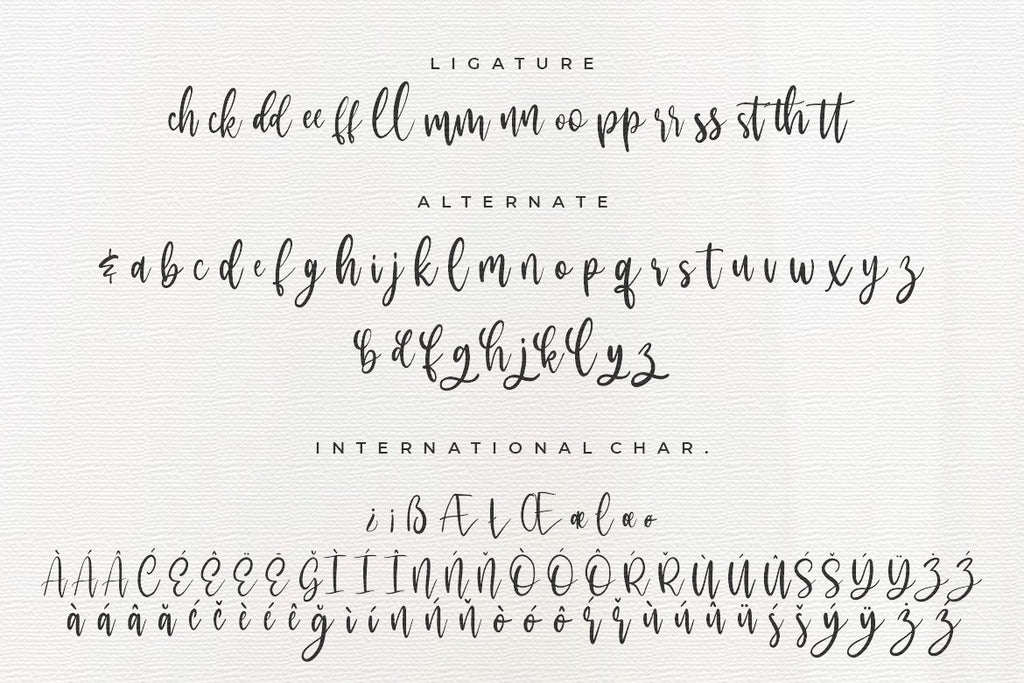 LIGATURE
ch ck dd ee ff ll mm nn oo pp rr ss st th tt
ALTERNATE
& a b c d e f g h i j k l m n o p q r s t u v w x y z
b d f g h j k l y z
INTERNATIONAL CHAR.
¿ ¡ ß Æ Ł Œ æ ł œ ø
À Á Â Ć É Ê Ë Ė Ğ Ì Í Î Ñ Ń Ň Ò Ó Ô Ŕ Ř Ù Ú Û Ś Š Ý Ÿ Ż Ź
à á â ă ć č è é ê ğ ì í ñ ń ň ò ó ô ŕ ř ù ú û ü ś š ý ÿ ż ź